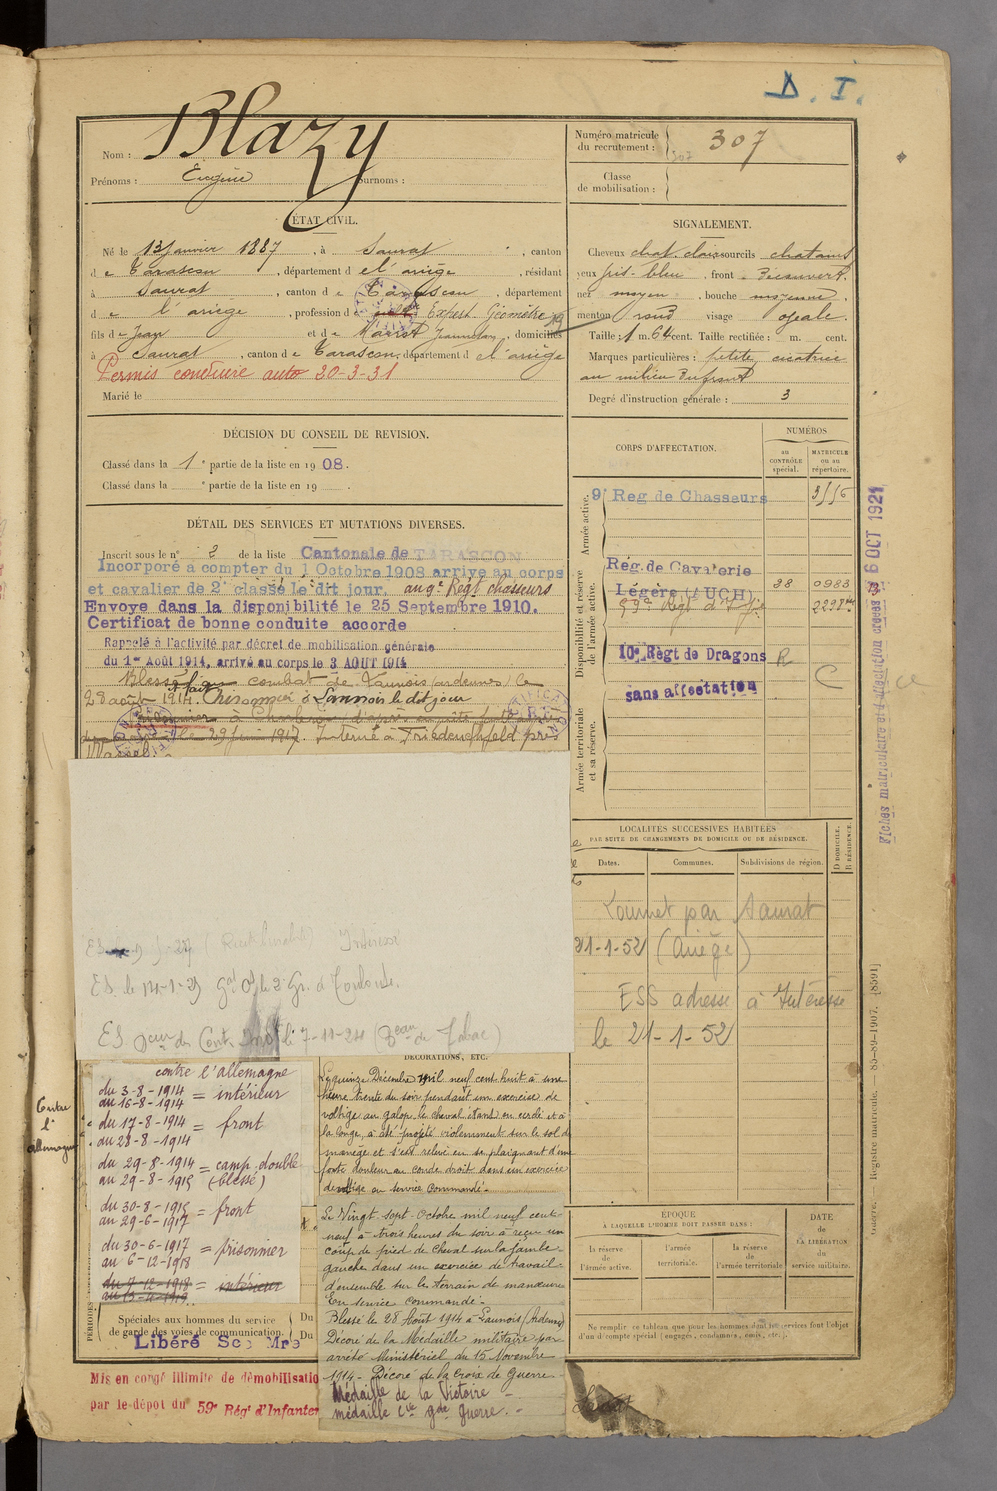 D. I.
Nom : Blazy
Prénoms : Eugène Surnoms :
Numéro matricule du recrutement : 307
307
Classe de mobilisation :
ÉTAT CIVIL.
Né le 13 Janvier 1887, à Saurat, canton
d e Tarascon, département d e l'ariège, résidant
à Saurat, canton d e Tarascon, département
d e l'ariège, profession d Expert Géomètre
fils d e Jean et d e, domiciliés
à Saurat, canton d e Tarascon, département d e l'ariège
Permis conduire auto 20-3-31
Marié le
SIGNALEMENT.
Cheveux chat. clair sourcils chatains
yeux gris-bleu, front découvert.
nez moyen, bouche moyenne,
menton rond visage ovale.
Taille : 1 m. 64 cent. Taille rectifiée : m. cent.
Marques particulières : petite cicatrice
au milieu du front
Degré d'instruction générale : 3
DÉCISION DU CONSEIL DE REVISION.
Classé dans la 1e partie de la liste en 19 08.
Classé dans la e partie de la liste en 19 .
DÉTAIL DES SERVICES ET MUTATIONS DIVERSES.
Inscrit sous le n° 2 de la liste Cantonale de TARASCON
Incorporé à compter du 1 Octobre 1908 arrivé au corps
et cavalier de 2e classe le dit jour. au 9e Régt chasseurs
Envoyé dans la disponibilité le 25 Septembre 1910.
Certificat de bonne conduite accordé
Rappelé à l'activité par décret de mobilisation générale
du 1er Août 1914, arrivé au corps le 3 AOUT 1914
Blessé au combat de Launois (ardennes) le
28 août 1914. fait Prisonnier à Launois le dit jour
le 29 Juin 1917. Interné à près
CORPS D'AFFECTATION.
NUMÉROS
au CONTRÔLE spécial.
MATRICULE ou au répertoire.
Armée active.
9e Reg de Chasseurs
Disponibilité et réserve de l'armée active.
Rég. de Cavalerie
Légère (AUCH) 38 0983
59e Régt d'Infie
10e Règt de Dragons R
sans affectation C
Armée territoriale et sa réserve.
Fiches matriculaire et d'affectation créées le 6 OCT 1921
LOCALITÉS SUCCESSIVES HABITÉES
PAR SUITE DE CHANGEMENTS DE DOMICILE OU DE RÉSIDENCE.
Dates. Communes. Subdivisions de région.
D DOMICILE. R RÉSIDENCE.
Lournet par Saurat
21-1-52 (Ariège)
ESS adressé à Intéressé
le 21-1-52
ES. le 14-1-29 Gal Ct le 2e Gr. à Toulouse.
7-11-24 (Beau de Tabac)
DÉCORATIONS, ETC.
Le quinze Décembre mil neuf cent huit à une
heure trente du soir pendant un exercice de
voltige au galop le cheval étant en cercle et à
la longe, a été projeté violemment sur le sol du
manège et s'est relevé en se plaignant d'une
forte douleur au coude droit dans un exercice
de voltige au service commandé.
Le Vingt sept Octobre mil neuf cent
neuf à trois heures du soir a reçu un
coup de pied de cheval sur la jambe
gauche dans un exercice de travail
d'ensemble sur le terrain de manœuvre
En service commandé.
Blessé le 28 Août 1914 à Launois (Ardennes)
Décoré de la Médaille militaire par
arrêté Ministériel du 15 Novembre
1914 - Décoré de la Croix de Guerre
Médaille de la Victoire -
médaille Cve Gde Guerre. -
Contre l' allemagne
contre l'allemagne
du 3-8-1914
au 16-8-1914 = intérieur
du 17-8-1914
au 28-8-1914 = front
du 29-8-1914
au 29-8-1915 = camp. double (blessé)
du 30-8-1915
au 29-6-1917 = front
du 30-6-1917
au 6-12-1918 = prisonnier
du 7-12-1918 = intérieur
PÉRIODES
Spéciales aux hommes du service de garde des voies de communication. Du Du
Libéré Sce Mre
Mis en congé illimité de démobilisatio
par le dépot du 59e Rég' d'Infanter
ÉPOQUE
À LAQUELLE L'HOMME DOIT PASSER DANS :
la réserve de l'armée active.
l'armée territoriale.
la réserve de l'armée territoriale
DATE de LA LIBÉRATION du service militaire.
Ne remplir ce tableau que pour les hommes dont les services font l'objet
d'un compte spécial (engagés, condamnés, omis, etc.).
Guerre. — Registre matricule. — 85-89-1907. [8591]